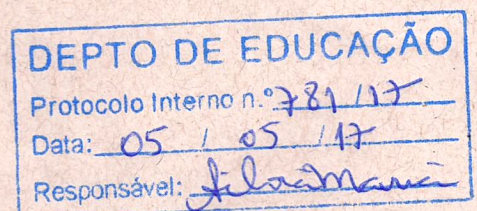 DEPTO DE EDUCAÇÃO
Protocolo Interno n.º 781 / 17
Data: 05 / 05 / 17
Responsável: